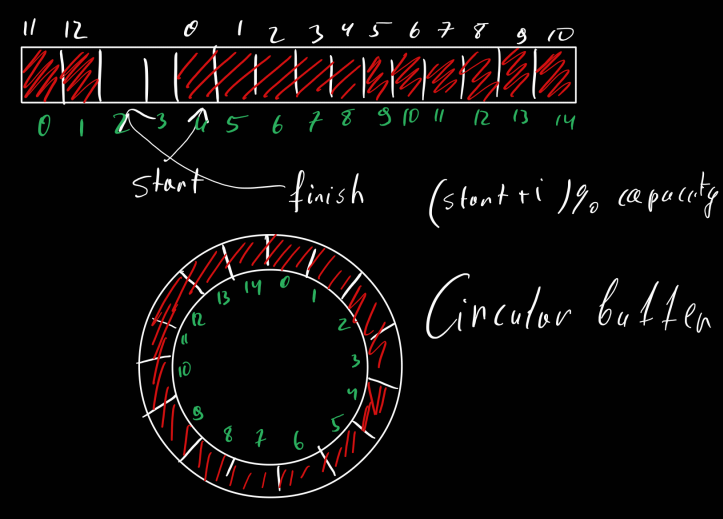 11 12 0 1 2 3 4 5 6 7 8 9 10
0 1 2 3 4 5 6 7 8 9 10 11 12 13 14
start
finish
(start + i) % capacity
Circular buffer
0
1
2
3
4
5
6
7
8
9
10
11
12
13
14